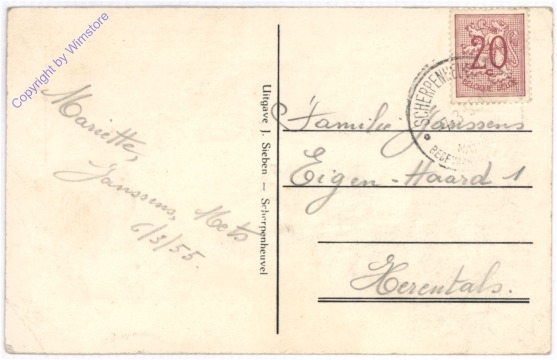 Copyright by Wimstore
Mariette,
Janssens, Mets
6/3/55.
Uitgave J. Sieben — Scherpenheuvel
20
SCHERPENHEU
Familie Janssens
Eigen-Haard 1
Herentals.